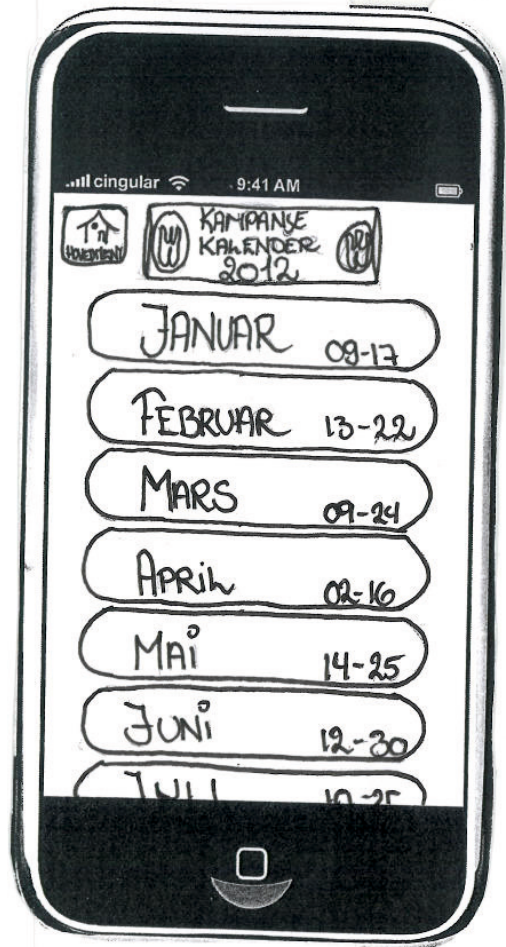 cingular 9:41 AM
HOVEDMENY
KAMPANJE
KALENDER
2012
JANUAR 09-17
FEBRUAR 13-22
MARS 09-24
APRIL 02-16
MAI 14-25
JUNI 12-30
JULI